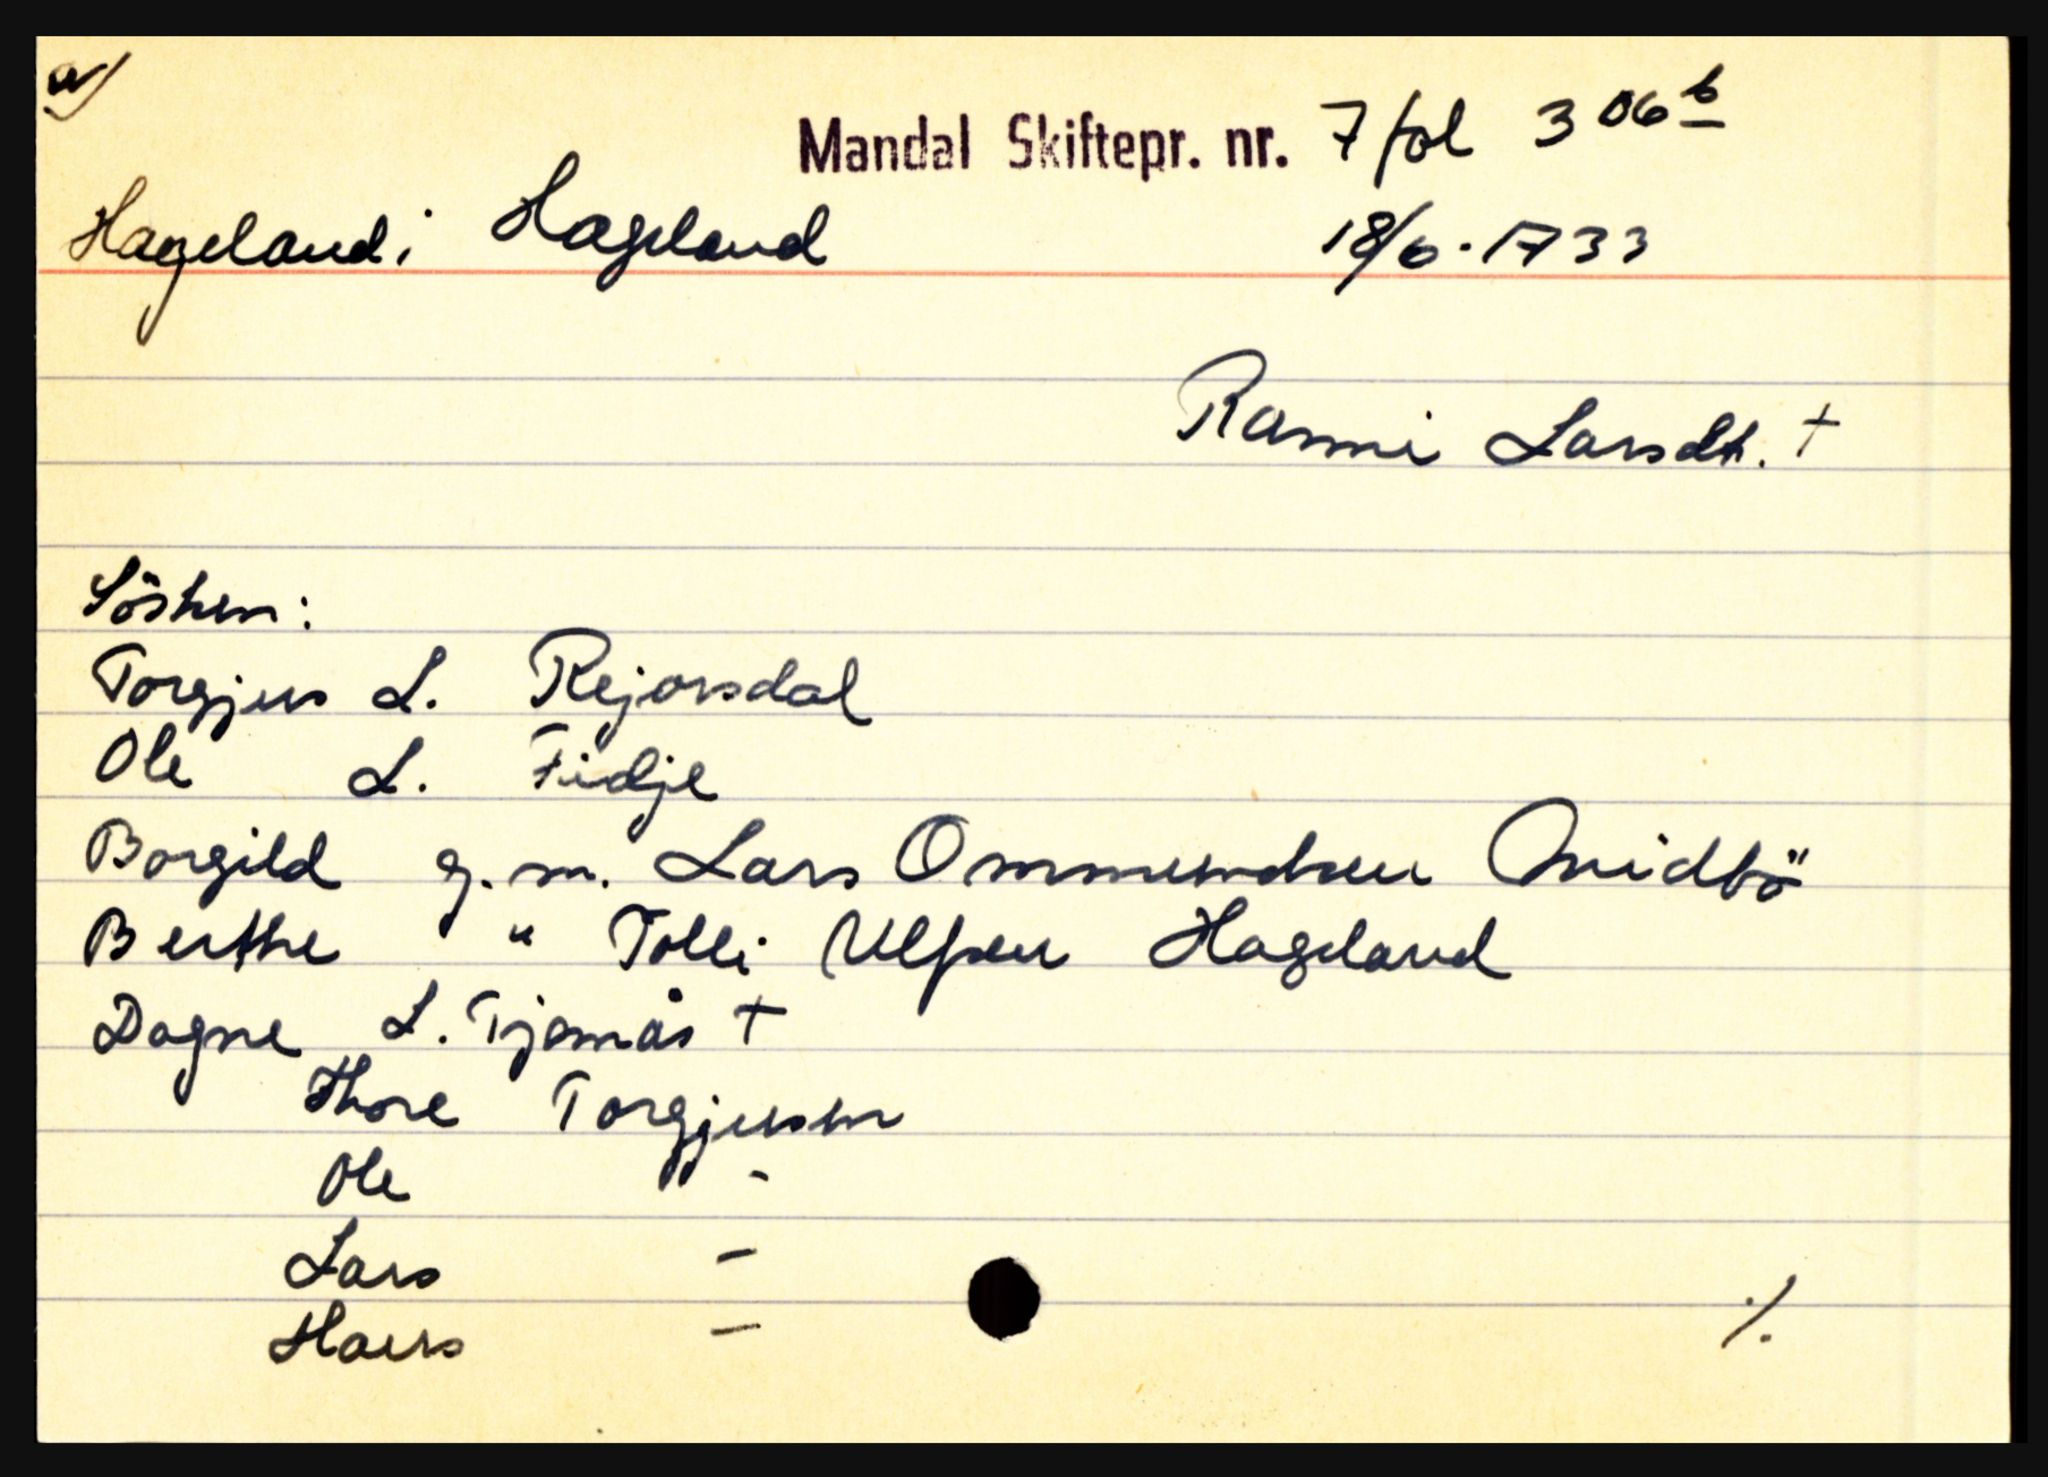 a)
Mandal Skiftepr. nr. 7 fol 306 b
Hageland i Hageland 18/6 · 1733
Ranni Larsdt. †
Sösken:
Torgjus L. Rejorsdal
Ole L. Fidje
Borgild g. m. Lars Ommundsen Midbö
Berthe " Tolli Ulfsen Hageland
Dagne L. Tjomås †
Thore Torgjusen
Ole -
Lars -
Hans -
./.